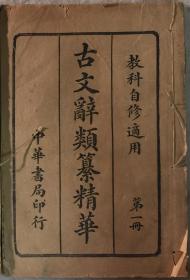 教科自修適用
第一冊
古文辭類纂精華
中華書局印行